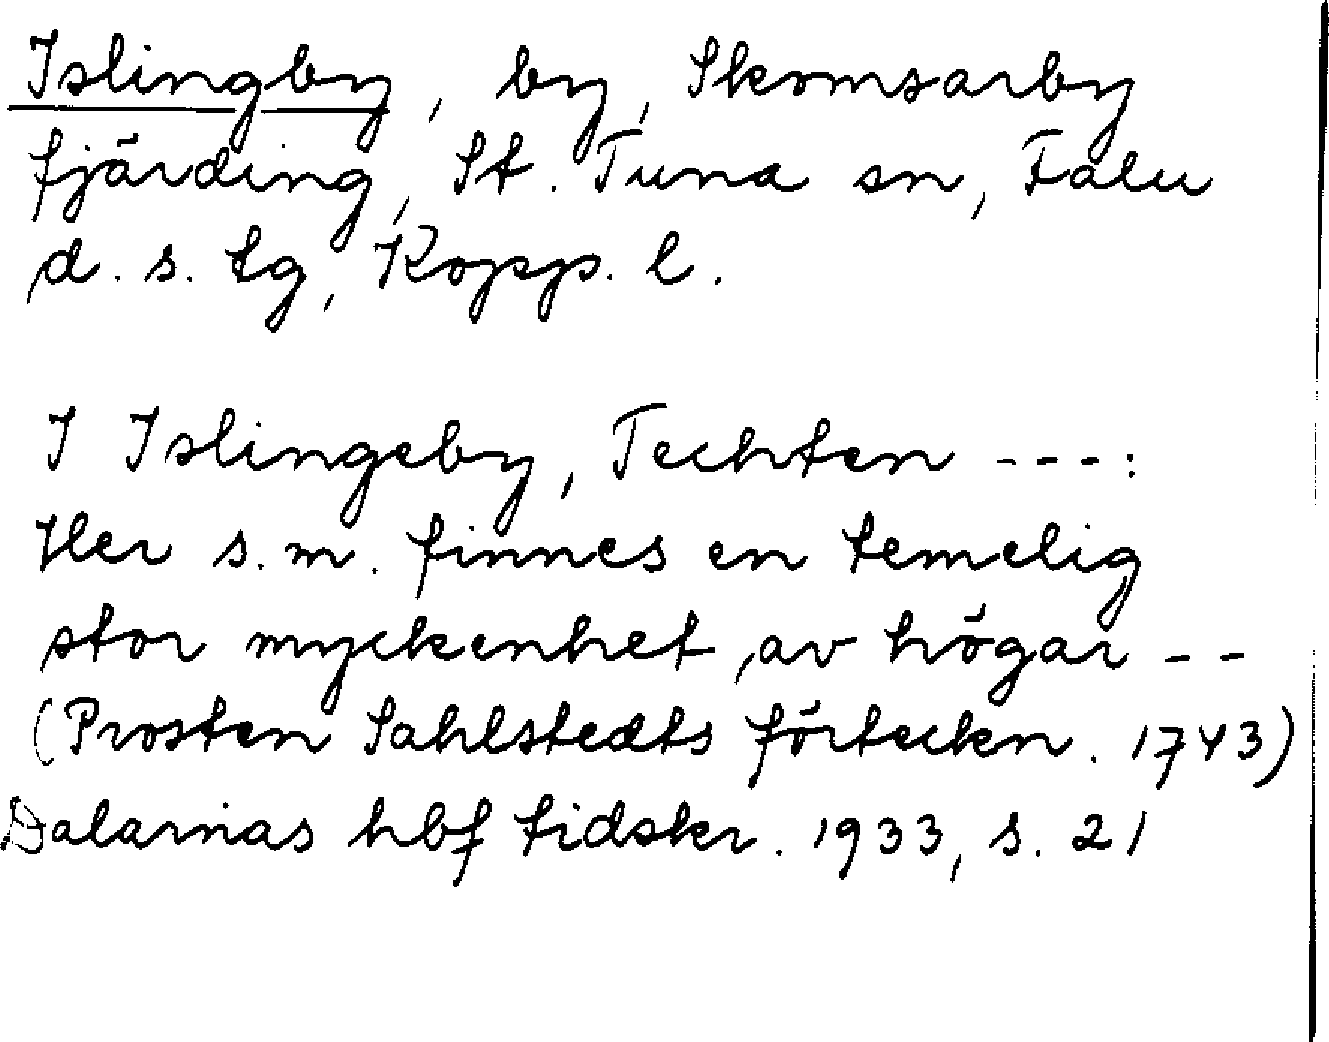 Islingby, by, Skomsarby
fjärding, St. Tuna sn, Falu
d. s. tg, Kopp. l.
I Islingeby, Techten ---:
Her s.m. finnes en temelig
stor myckenhet av högar --
(Prosten Sahlstedts förteckn. 1743)
Dalarnas hbf tidskr. 1933, s. 21